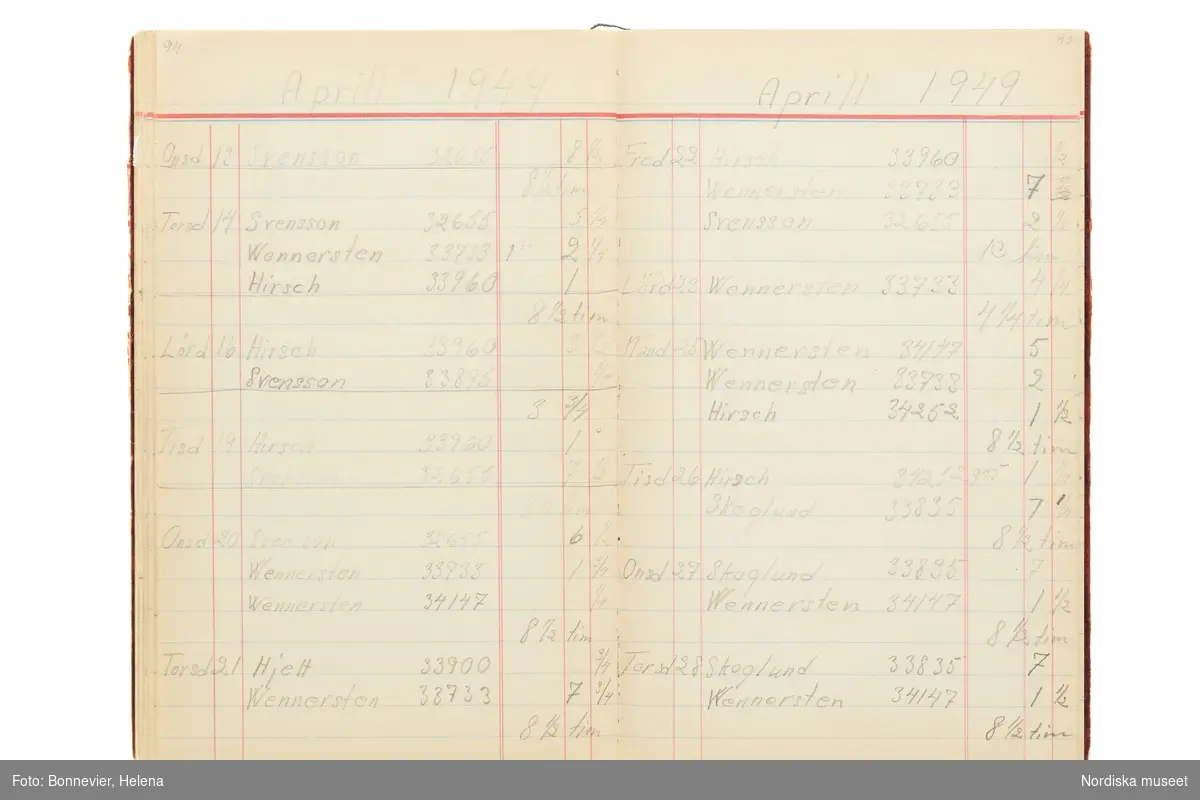 94
Aprill 1949
Onsd 13 Svensson 32655 8 1/2
8 1/2 tim
Torsd 14 Svensson 32655 5 1/4
Wennersten 33733 2 1/4
Hirsch 33960 1
8 1/2 tim
Lörd 16 Hirsch 33960 3
Svensson 33895
3 3/4
Tisd 19 Hirsch 33960 1
Svensson 32655 7
Onsd 20 Svensson 32655 6 1/2
Wennersten 33933 1
Wennersten 34147 1/4
8 1/2 tim
Torsd 21 Hjelt 33900 3/4
Wennersten 33733 7 3/4
8 1/2 tim
Aprill 1949
Fred 22 Hirsch 33960 1/2
Wennersten 33733 7
Svensson 32655 2 1/2
10 tim
Lörd 23 Wennersten 33733 4 1/4
4 1/4 tim
Månd 25 Wennersten 34147 5
Wennersten 33733 2
Hirsch 34252 1 1/2
8 1/2 tim
Tisd 26 Hirsch 34252 1 1/4
Skoglund 33835 7 1/4
8 1/2 tim
Onsd 27 Skoglund 33835 7
Wennersten 34147 1 1/2
8 1/2 tim
Torsd 28 Skoglund 33835 7
Wennersten 34147 1 1/2
8 1/2 tim
Foto: Bonnevier, Helena
Nordiska museet